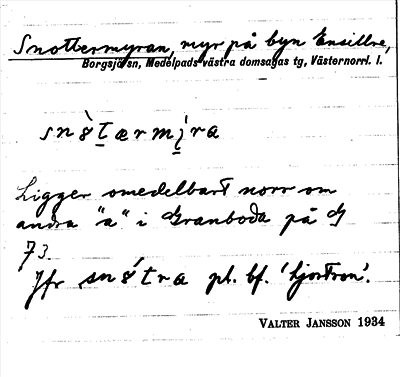 Snottermyran, myr på byn Ensillre,
Borgsjö sn, Medelpads västra domsagas tg, Västernorrl. l.
Ligger omedelbart norr om
andra "a" i Granboda på G
73.
Jfr pl. bf. 'hjortron'.
VALTER JANSSON 1934